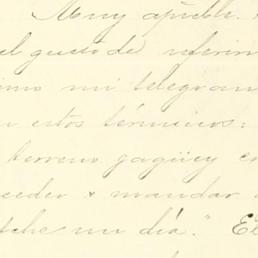 Muy apble.
el gusto de referirm
imo mi telegram
n estos términos:
terreno jagüey co
ceder x mandar
che un día." El